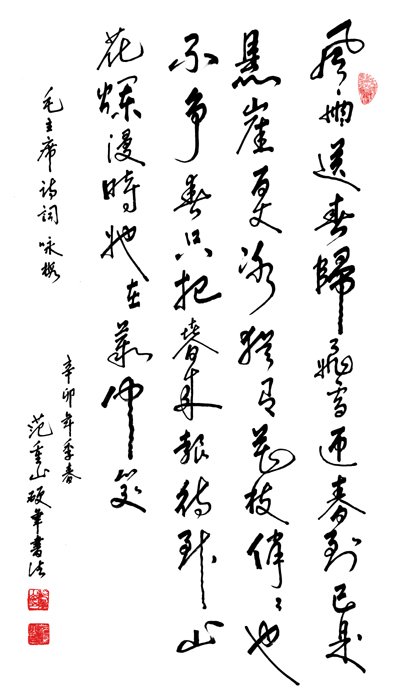 風雨送春歸飛雪迎春到已是
懸崖百丈冰猶有花枝俏〻也
不争春只把春来報待到山
花爛漫時她在叢中笑
毛主席诗词咏梅
辛卯年季春
范重山硬笔書法